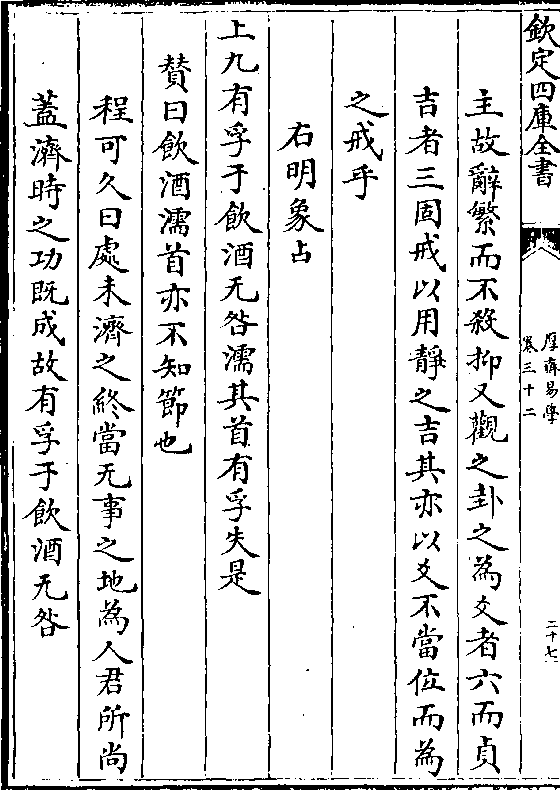 欽定四庫全書
厚齋易學
卷三十二
二十七
主故辭繁而不殺抑又觀之卦之為爻者六而貞
吉者三固戒以用靜之吉其亦以爻不當位而為
之戒乎
右明象占
上九有孚于飲酒无咎濡其首有孚失是
贊曰飲酒濡首亦不知節也
程可久曰處未濟之終當无事之地為人君所尚
蓋濟時之功既成故有孚于飲酒无咎